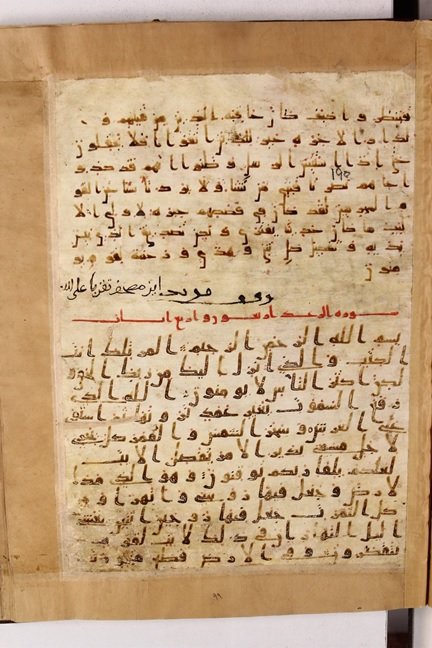 فينظروا كيف كان عاقبة الذين من قبلهم و
لدار الاخرة خير للذين اتقوا افلا تعقلون
حتى اذا استيئس الرسل وظنوا انهم قد كذبوا
جاهم نصرنا فنجي من نشا ولا يرد باسنا عن القو
م المجرمين لقد كان في قصصهم عبرة لاولي الا
لبب ما كان حديثا يفترى ولكن تصديق الذي بين
يديه وتفصيل كل شي وهدى ورحمة لقوم يو
منون
سورة الرعد واربع ايات
بسم الله الرحمن الرحيم المر تلك ايت
الكتب والذي انزل اليك من ربك الحق و
لكن اكثر الناس لا يومنون الله الذي
رفع السموت بغير عمد ترونها ثم استوى
على العرش وسخر الشمس والقمر كل يجري
لاجل مسمى يدبر الامر يفصل الايت
لعلكم بلقا ربكم توقنون وهو الذي مد ا
لارض وجعل فيها روسي وانهرا و من
كل الثمرت جعل فيها زوجين اثنين يغشي
اليل النهار ان في ذلك لايت لقوم
يتفكرون وفي الارض قطع